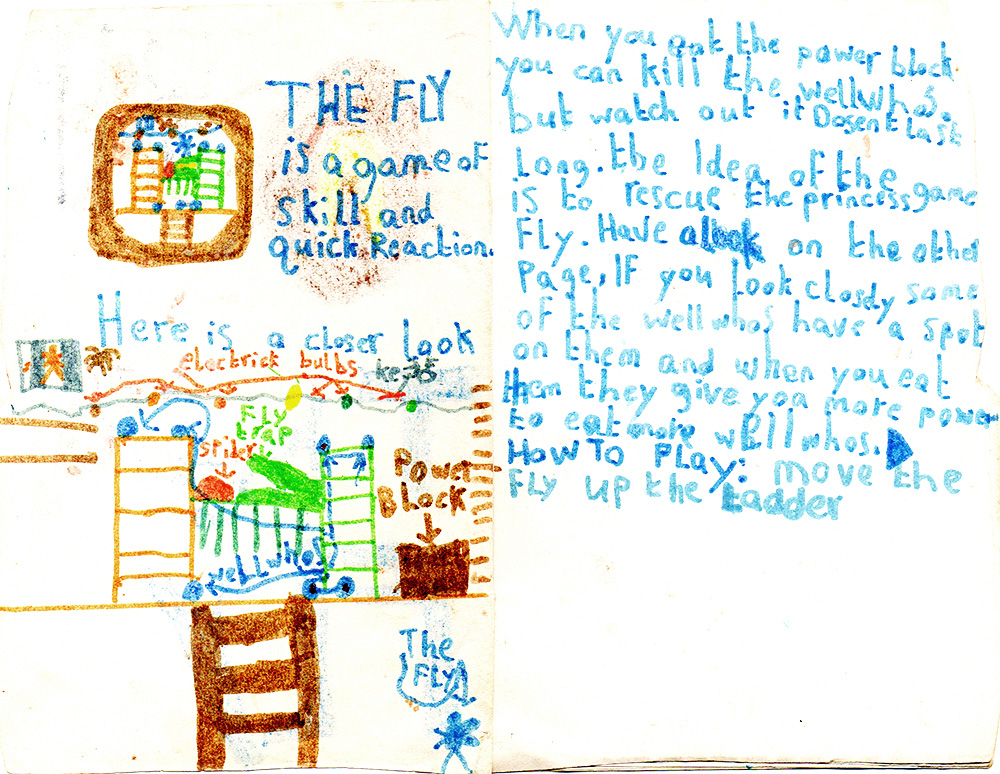 THE FLY
is a game of
skill and
quick Reaction.
Here is a closer look
electrick bulbs
Fly
trap
spider
Power
Block
wellwhos
The
Fly
When you eat the power block
you can kill the wellwhos.
but watch out it Dosent Last
Long. the Idea of the game
is to rescue the princess
Fly. Have a look on the other
Page, IF you look closdy some
of the wellwhos have a spot
on them and when you eat
them they give you more power
to eat more wellwhos.
HOW TO PLAY: move the
FLY up the Ladder